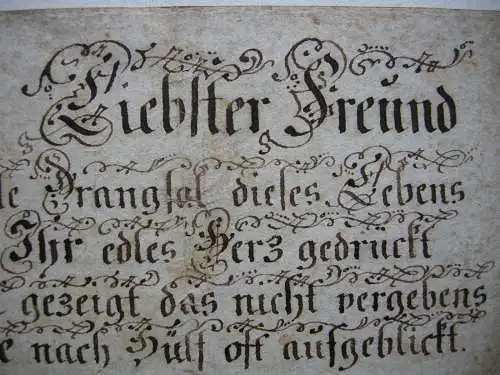 Liebster Freund
le Drangsal dieses Lebens
Ihr edles Herz gedrückt
gezeigt das nicht vergebens
e nach Hülf oft aufgeblickt.